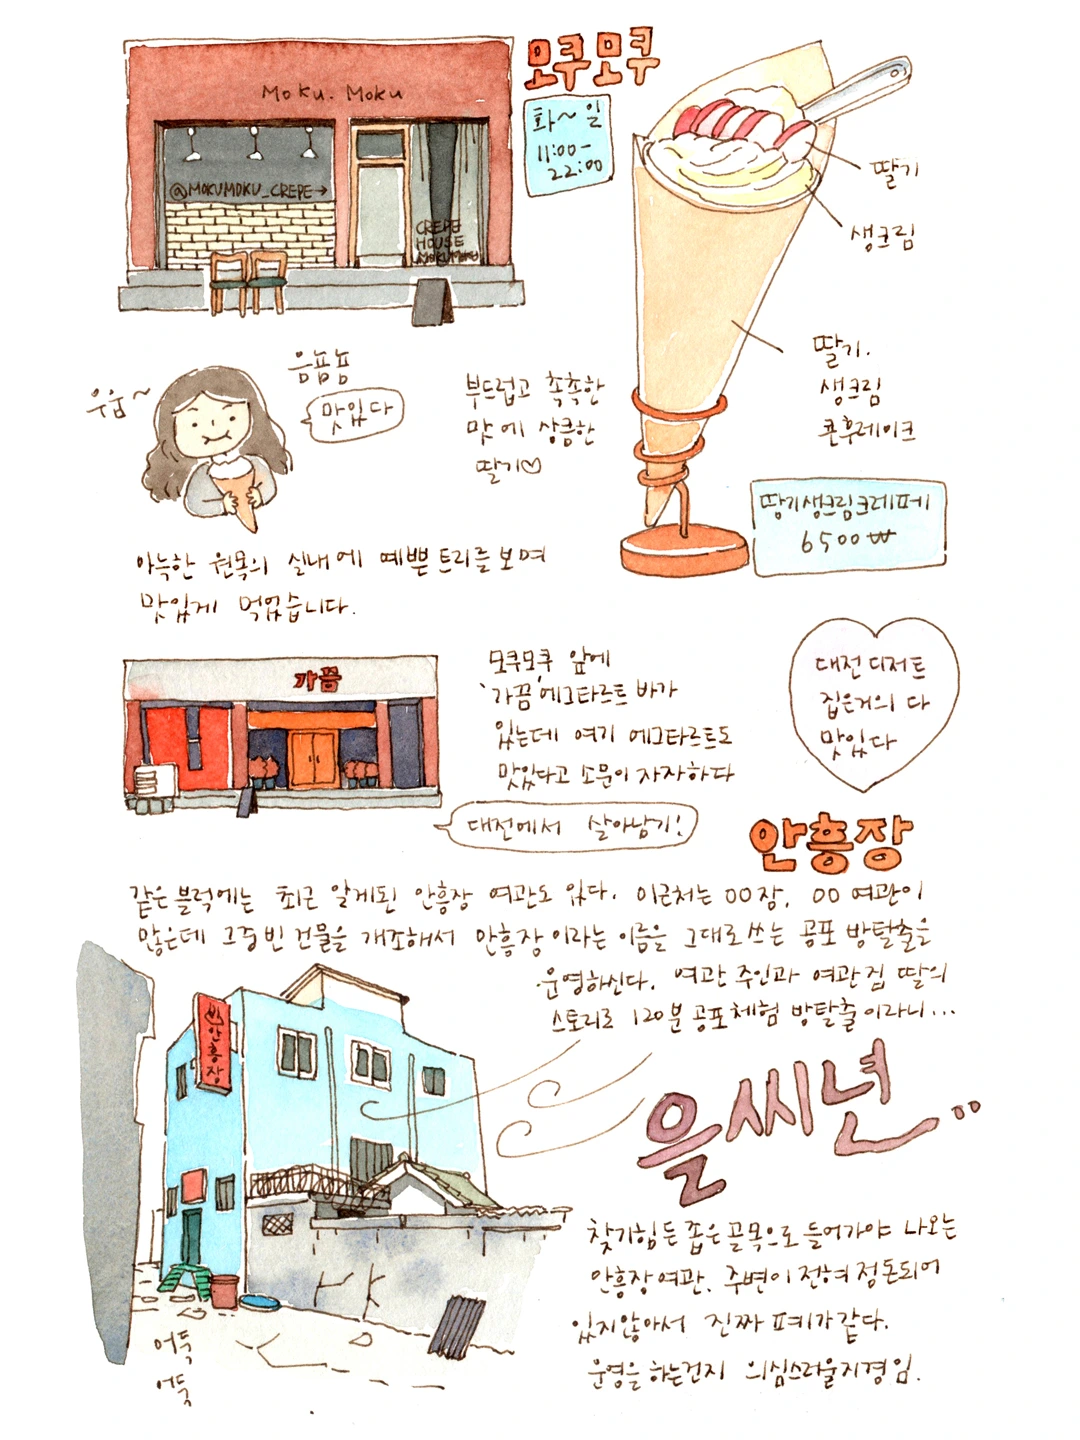 모쿠모쿠
Moku. Moku
화~일
11:00-
22:00
@MOKUMOKU_CREPE→
CREPE
HOUSE
MOKUMOKU
딸기
생크림
딸기.
생크림
콘후레이크
음뇸뇸
우움~
맛있다
부드럽고 촉촉한
맛에 상큼한
딸기♡
딸기생크림크레페
6500₩
아늑한 원목의 실내에 예쁜 트리를 보며
맛있게 먹었습니다.
가끔
모쿠모쿠 앞에
'가끔' 에그타르트 바가
있는데 여기 에그타르트도
맛있다고 소문이 자자하다
대전 디저트
집은거의 다
맛있다
대전에서 살아남기!
안흥장
같은 블럭에는 최근 알게된 안흥장 여관도 있다. 이근처는 OO장, OO 여관이
많은데 그중 빈 건물을 개조해서 안흥장이라는 이름을 그대로 쓰는 공포 방탈출을
운영하신다. 여관 주인과 여관집 딸의
스토리로 120분 공포체험 방탈출이라니...
안흥장
을씨년..
찾기힘든 좁은 골목으로 들어가야 나오는
안흥장여관. 주변이 전혀 정돈되어
있지않아서 진짜 폐가같다.
운영을 하는건지 의심스러울지경임.
어둑
어둑